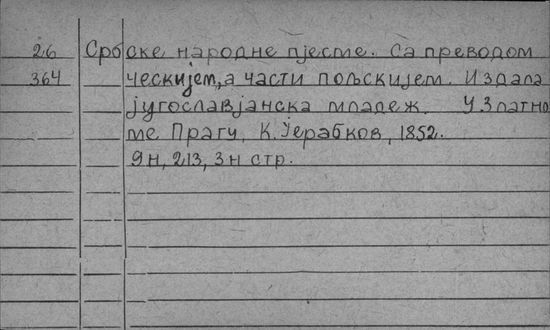 26 Србске народне пјесме. Са преводом
364 ческијем, а части пољскијем. Издала
југославјанска младеж. У Златно
ме Прагу, К. Јерабков, 1852.
9н, 213, 3н стр.